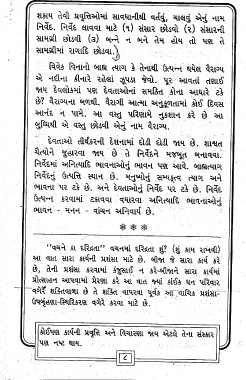 શકાય તેવી પ્રવૃત્તિઓમાં સાવધાનીથી વર્તવું, ચાલવું એનું નામ
નિર્વેદ. નિર્વેદ લાવવા માટે (૧) સંસાર છોડવો (૨) સંસારની
સામગ્રી છોડવી (૩) બન્ને ન બને તેમ હોય તો પણ તે
સામગ્રીમાં રાગાદિ છોડવા.
વિવેક વિનાનો બાહ્ય ત્યાગ કે તેનાથી ઉત્પન્ન થયેલ વૈરાગ્ય
એ નદીના કીનારે રહેલાં ઝૂંપડા જેવો. પૂર આવતાં તણાઈ
જાય દેવલોકમાં પણ દેવતાઓનાં સમકિત શેના આધારે ટકે
છે? વૈરાગ્યના બળથી. વૈરાગી આત્મા અનુકૂળતામાં કોઈ દિવસ
આનંદ ન પામે. આ વસ્તુ પરિણામે નુકશાન કરે છે આ
બુધ્ધિથી એ વસ્તુ છોડવી એનું નામ વૈરાગ્ય.
દેવતાઓ તીર્થંકરની દેશનામાં દોડી દોડી જાય છે. શાશ્વત
ચૈત્યોને જુહારવા જાય છે તે નિર્વેદને મજબૂત બનાવવા.
નિર્વેદમાં અનિત્યાદિ ભાવનાઓનું ભાવન પણ આવે. બાહ્યત્યાગ
નિર્વેદનું ઉત્પત્તિ સ્થાન છે. મનુષ્યોનું સમ્યક્ત્વ ત્યાગ અને
ભાવના પર ટકે છે. અને દેવતાઓનું નિર્વેદ પર ટકે છે. નિર્વેદ
ઉત્પન્ન કરવામાં ટકાવવા વધારવા અનિત્યાદિ ભાવનાઓનું
ભાવન - મનન - વાંચન અનિવાર્ય છે.
***
"વચને કા દરિદ્રતા" વચનમાં દરિદ્રતા શું? (શું કામ રાખવી)
આ વાત સારા કાર્યની પ્રશંસા માટે છે. બીજા જે સારા કાર્ય કરે
છે, તેની પ્રશંસા કરવામાં કંજુસાઈ ન કરે-બીજાને સારા કાર્યમાં
પ્રોત્સાહન આપવામાં પ્રેરણા કરે આ વાત જ્યાં કાંઈક ઘન પરિવાર
વગેરે શક્તિવાળા છે તે શક્તિ વાપરવા પૂર્વક આ વાચિક પ્રશંસા-
ઉપબૃંહણા-સ્થિરિકરણ વગેરે કરવા માટે છે.
કોઈપણ કાર્યની પ્રવૃત્તિ અને વિચારણા જાય એટલે તેના સંસ્કાર
પણ નષ્ટ થાય.
૮